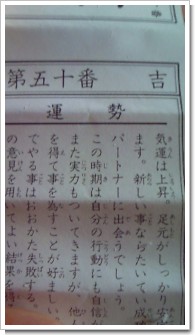 第五十番 吉
運勢
気運は上昇、足元がしっかり安
ます。新しい事ならたいてい成
パートナーに出会うでしょう。
この時期は自分の行動にも自信
また実力もついてきますが、他人
を得て事を為すことが好ましい。
でやる事はおおかた失敗する。
の意見を用いてよい結果を